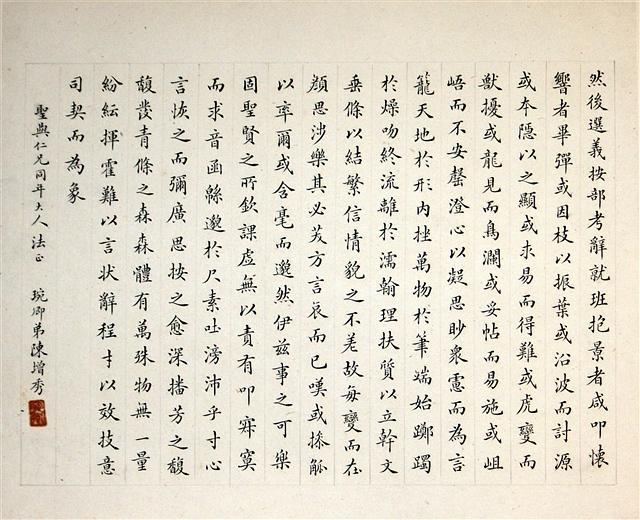 然後選義按部考辭就班抱景者咸叩懷
響者畢彈或因枝以振葉或沿波而討源
或本隱以之顯或求易而得難或虎變而
獸擾或龍見而鳥瀾或妥帖而易施或岨
峿而不安罄澄心以凝思眇衆慮而為言
籠天地於形內挫萬物於筆端始躑躅
於燥吻終流離於濡翰理扶質以立幹文
垂條以結繁信情貌之不差故每變而在
顏思涉樂其必笑方言哀而已嘆或操觚
以率爾或含毫而邈然伊茲事之可樂
固聖賢之所欽課虛無以責有叩寂寞
而求音函緜邈於尺素吐滂沛乎寸心
言恢之而彌廣思按之愈深播芳之馥
馥發青條之森森體有萬殊物無一量
紛紜揮霍難以言状辭程才以效技意
司契而為象
聖與仁兄同年大人法正 琬卿弟陳增秀